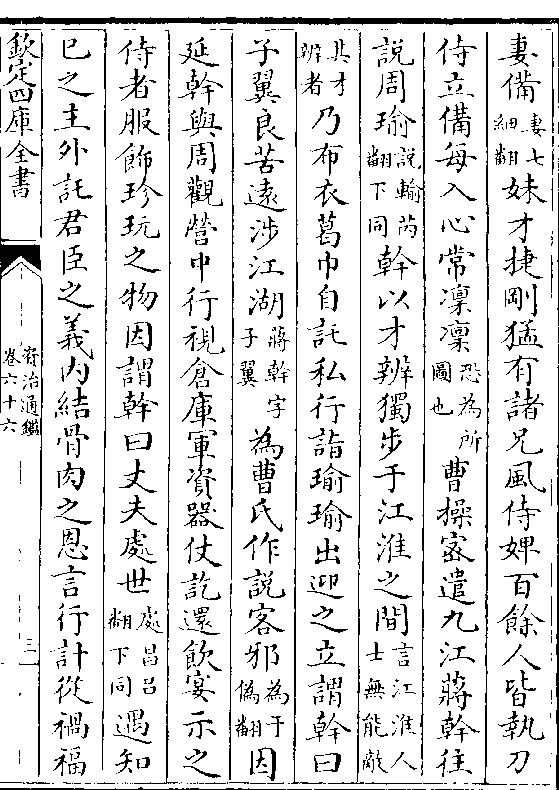 妻備妻七細翻妹才捷剛猛有諸兄風侍婢百餘人皆執刀
侍立備每入心常凜凜恐為所圖也曹操宻遣九江蔣幹往
說周瑜說輸芮翻下同幹以才辨獨步于江淮之間言江淮人士無能敵
其才辨者乃布衣葛巾自託私行詣瑜瑜出迎之立謂幹曰
子翼良苦遠涉江湖蔣幹字子翼為曹氏作說客邪為于偽翻因
延幹與周觀營中行視倉庫軍資器仗訖還飲宴示之
侍者服飾珍玩之物因謂幹曰丈夫處世處昌呂翻下同遇知
已之主外託君臣之義内結骨肉之恩言行計從禍福
欽定四庫全書
資治通鑑
卷六十六
三